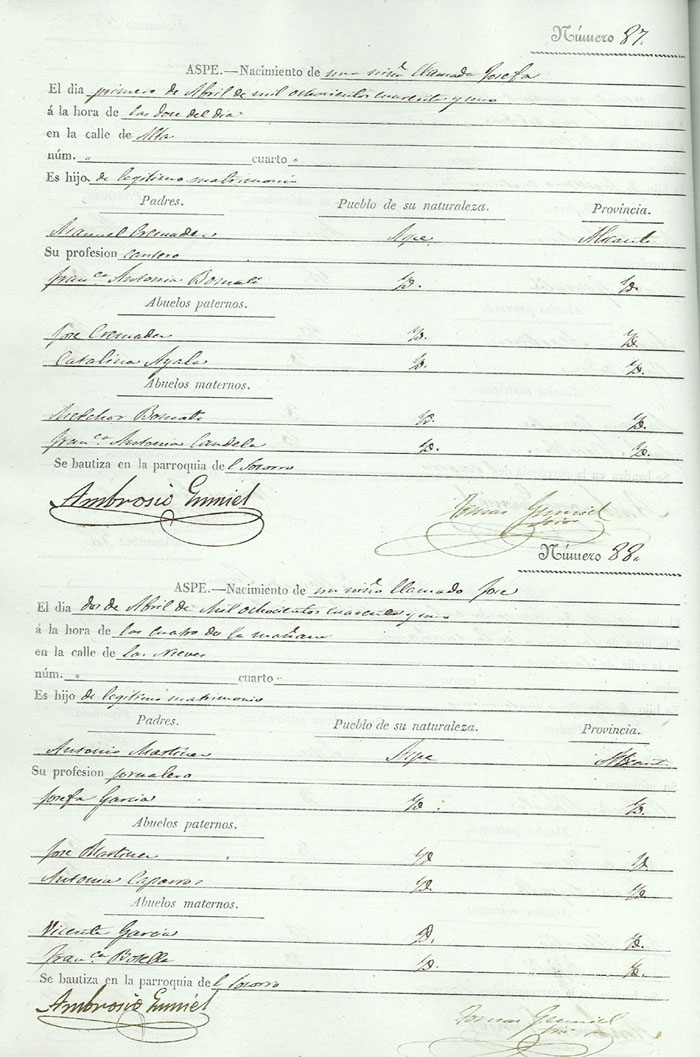 Número 87.
ASPE.—Nacimiento de una niña llamada Josefa
El dia primero de Abril de mil ochocientos cuarenta y uno
á la hora de las doce del dia
en la calle de Alta
núm. " cuarto "
Es hijo de legitimo matrimonio
Padres. Pueblo de su naturaleza. Provincia.
Manuel Cremades Aspe Alicante
Su profesion cantero
Fran.ca Antonia Bomati Yd. Yd.
Abuelos paternos.
Jose Cremades Yd. Yd.
Catalina Ayala Yd. Yd.
Abuelos maternos.
Melchor Bomati Yd. Yd.
Fran.ca Antonia Candela Yd. Yd.
Se bautiza en la parroquia del Socorro
Ambrosio Gumiel Tomas Gumiel
Número 88.
ASPE.—Nacimiento de un niño llamado Jose
El dia dos de Abril de mil ochocientos cuarenta y uno
á la hora de las cuatro de la mañana
en la calle de las Nieves
núm. " cuarto
Es hijo de legitimo matrimonio
Padres. Pueblo de su naturaleza. Provincia.
Antonio Martinez Aspe Alicante
Su profesion jornalero
Josefa Garcia Yd. Yd.
Abuelos paternos.
Jose Martinez Yd Yd
Antonia Caparros Yd. Yd
Abuelos maternos.
Vicente Garcia Yd. Yd.
Fran.ca Botella Yd. Yd.
Se bautiza en la parroquia del Socorro
Ambrosio Gumiel Tomas Gumiel